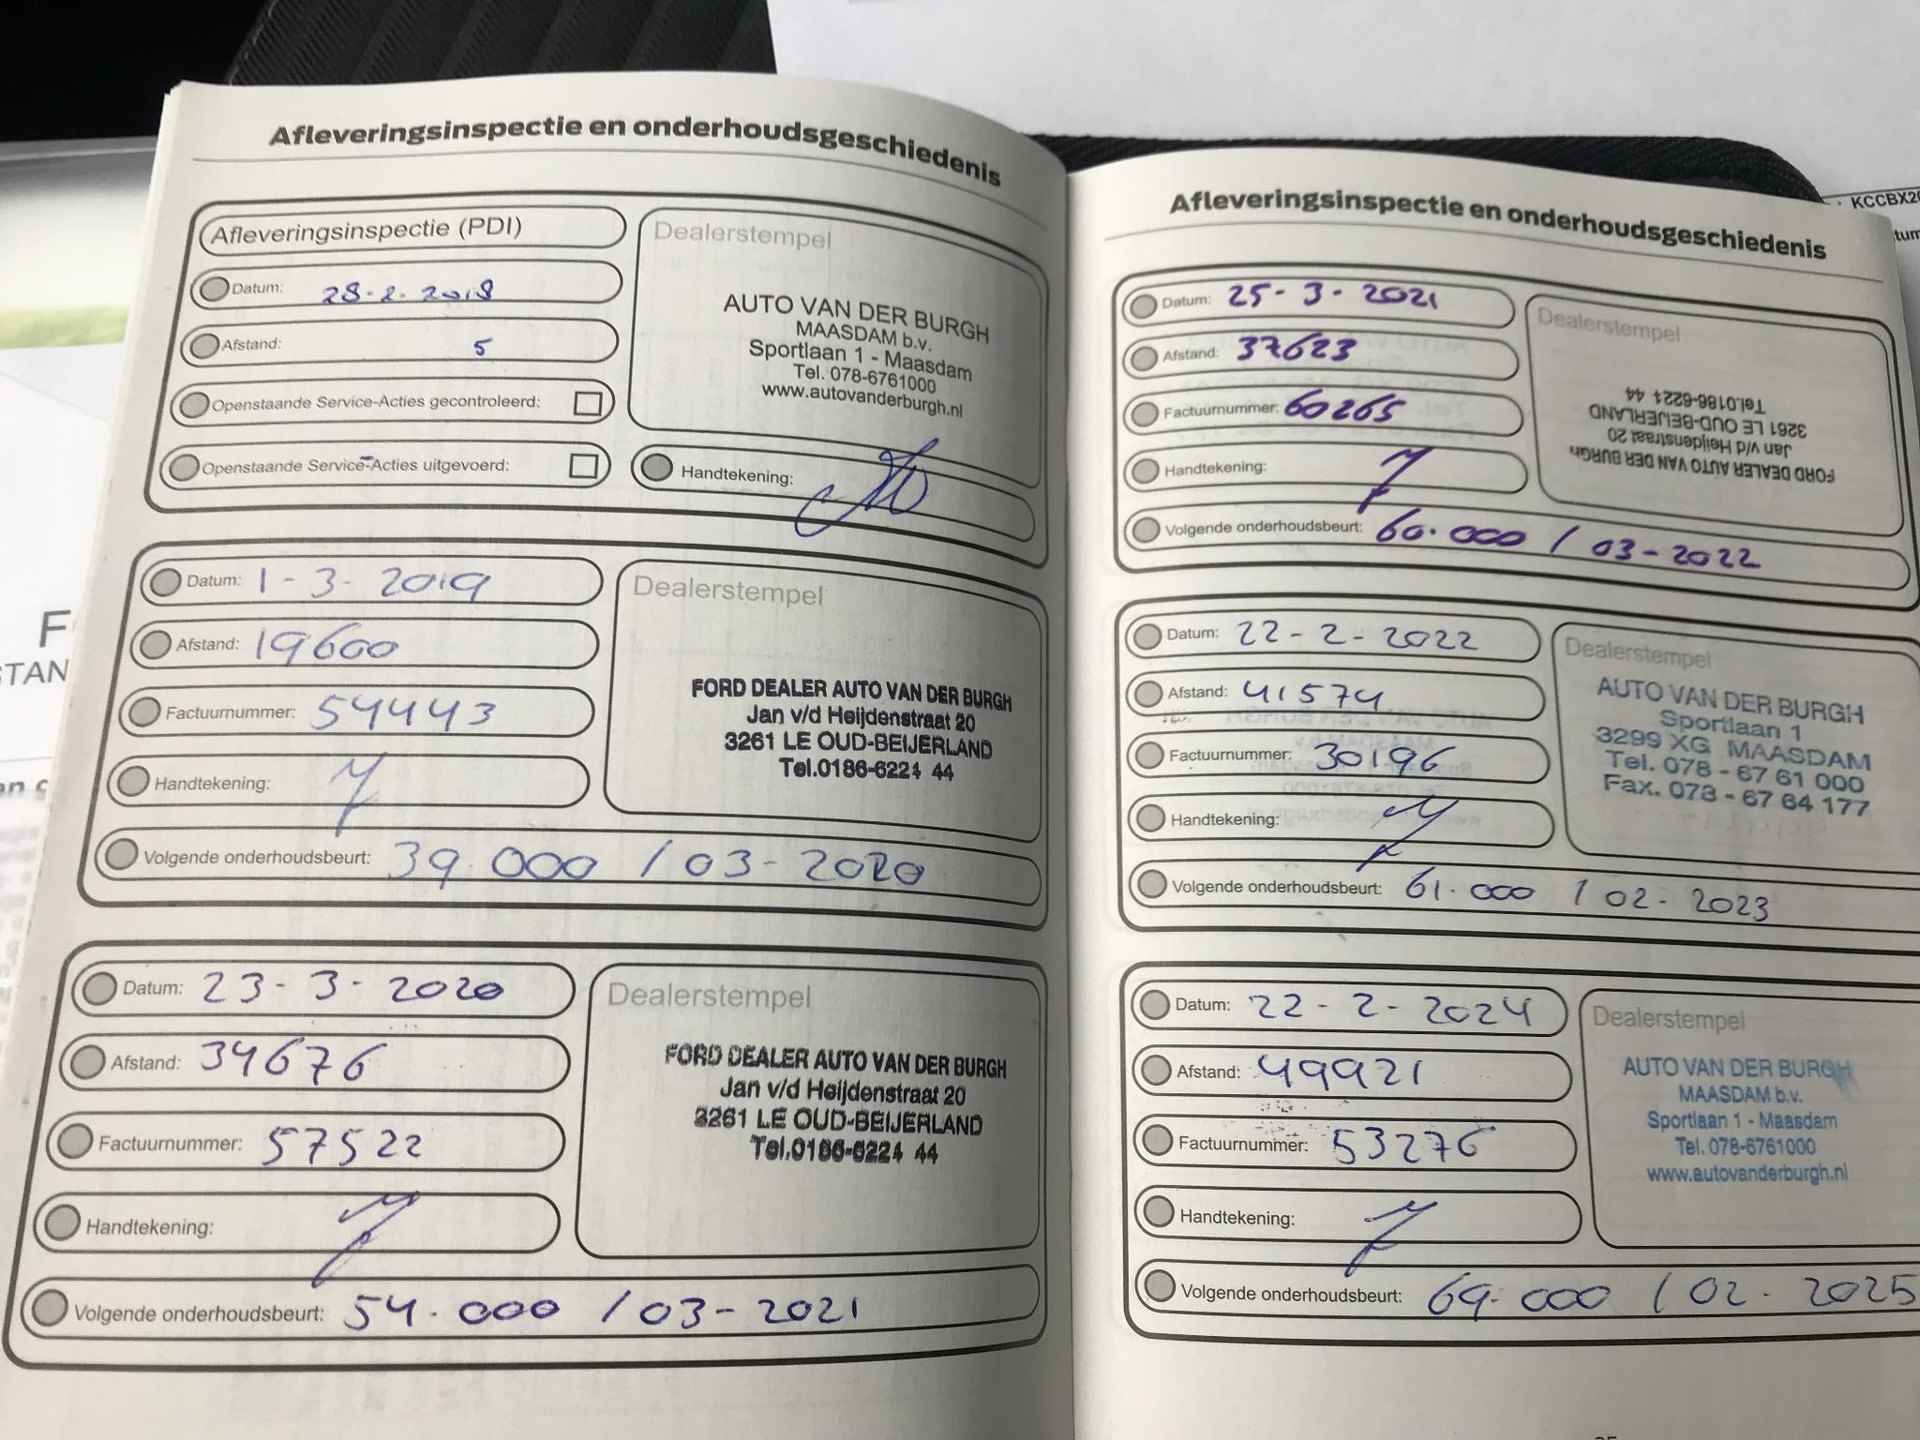 Afleveringsinspectie en onderhoudsgeschiedenis
Afleveringsinspectie (PDI)
Datum: 28-2-2018
Afstand: 5
Openstaande Service-Acties gecontroleerd:
Openstaande Service-Acties uitgevoerd:
Dealerstempel
AUTO VAN DER BURGH
MAASDAM b.v.
Sportlaan 1 - Maasdam
Tel. 078-6761000
www.autovanderburgh.nl
Handtekening:
Datum: 1-3-2019
Afstand: 19600
Factuurnummer: 54443
Handtekening:
Volgende onderhoudsbeurt: 39.000 / 03-2020
Dealerstempel
FORD DEALER AUTO VAN DER BURGH
Jan v/d Heijdenstraat 20
3261 LE OUD-BEIJERLAND
Tel.0186-6224 44
Datum: 23-3-2020
Afstand: 34676
Factuurnummer: 57522
Handtekening:
Volgende onderhoudsbeurt: 54.000 / 03-2021
Dealerstempel
FORD DEALER AUTO VAN DER BURGH
Jan v/d Heijdenstraat 20
3261 LE OUD-BEIJERLAND
Tel.0186-6224 44
Afleveringsinspectie en onderhoudsgeschiedenis
Datum: 25-3-2021
Afstand: 37623
Factuurnummer: 60265
Handtekening:
Volgende onderhoudsbeurt: 60.000 / 03-2022
Dealerstempel
FORD DEALER AUTO VAN DER BURGH
Jan v/d Heijdenstraat 20
3261 LE OUD-BEIJERLAND
Tel.0186-6224 44
Datum: 22-2-2022
Afstand: 41574
Factuurnummer: 30196
Handtekening:
Volgende onderhoudsbeurt: 61.000 / 02-2023
Dealerstempel
AUTO VAN DER BURGH
Sportlaan 1
3299 XG MAASDAM
Tel. 078 - 67 61 000
Fax. 078 - 67 64 177
Datum: 22-2-2024
Afstand: 49921
Factuurnummer: 53276
Handtekening:
Volgende onderhoudsbeurt: 69.000 / 02-2025
Dealerstempel
AUTO VAN DER BURGH
MAASDAM b.v.
Sportlaan 1 - Maasdam
Tel. 078-6761000
www.autovanderburgh.nl
KCCBX20